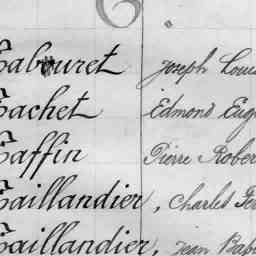 Tabouret Joseph Loui
Tachet Edmond Eug
Taffin Pierre Rober
Taillandier, Charles Fer
Taillandier, Jean Bap